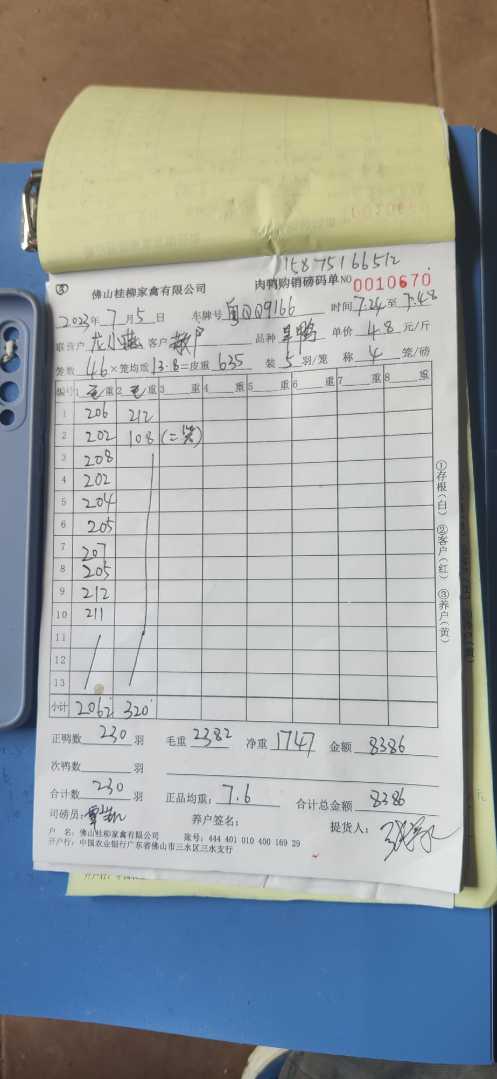 15875166512
③ 佛山桂柳家禽有限公司 肉鸭购销磅码单 NO 0010670
2023年 7月 5日 车牌号 粤QQ9166 时间 7.24 至 7.48
联营户 龙小燕 客户 散户 品种 旱鸭 单价 4.8 元/斤
笼数 46 × 笼均重 13.8 = 皮重 635 装 5 羽/笼 称 4 笼/磅
编号 1 毛重 2 毛重 3 重 4 重 5 重 6 重 7 重 8 重
1 206 212
2 202 108 (=笼)
3 208
4 202
5 204
6 205
7 207
8 205
9 212
10 211
11
12
13
小计 2062 320
正鸭数 230 羽 毛重 2382 净重 1747 金额 8386
次鸭数 羽
合计数 230 羽 正品均重: 7.6 合计总金额 8386
司磅员: 养户签名: 提货人:
户 名: 佛山桂柳家禽有限公司 账号: 444 401 010 400 169 29
开户行: 中国农业银行广东省佛山市三水区三水支行
①存根(白) ②客户(红) ③养户(黄)